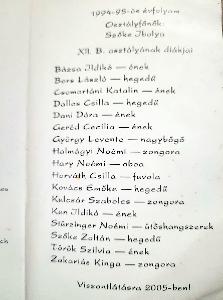 1994-95-ös évfolyam
Osztályfőnök:
Szőke Ibolya
XII. B. osztályának diákjai
Bázsa Ildikó — ének
Bors László — hegedű
Csomortáni Katalin — ének
Dallos Csilla — hegedű
Dani Dóra — ének
Geréd Cecília — ének
György Levente — nagybőgő
Halmágyi Noémi — zongora
Hary Noémi — oboa
Horváth Csilla — fuvola
Kovács Emőke — hegedű
Kulcsár Szabolcs — zongora
Kun Ildikó — ének
Stürzinger Noémi — ütőhangszerek
Szőke Zoltán — hegedű
Török Szilvia — ének
Zakariás Kinga — zongora
Viszontlátásra 2005-ben!